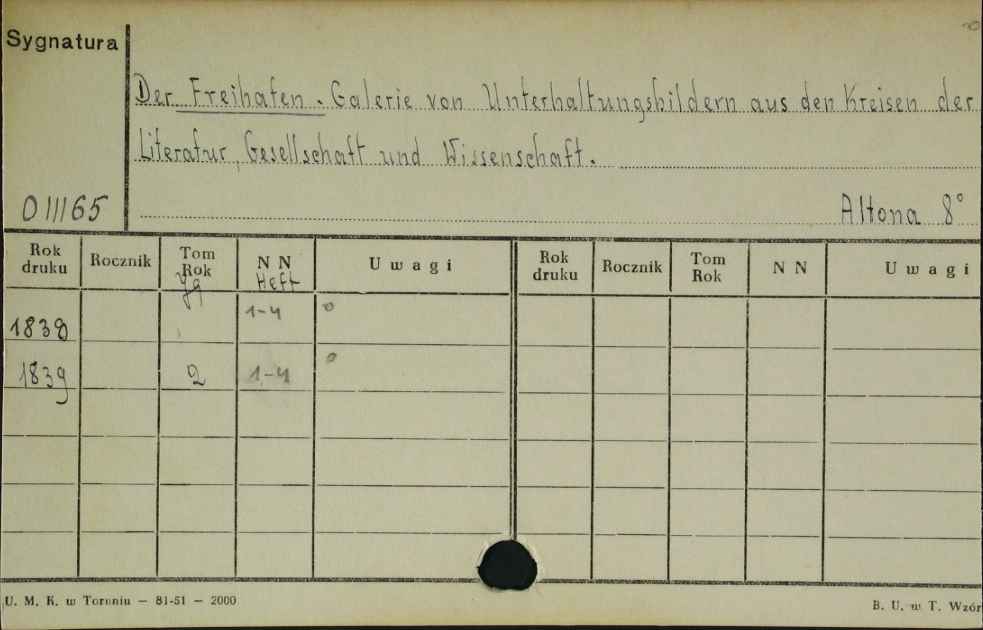 Sygnatura
Der Freihafen. Galerie von Unterhaltungsbildern aus den Kreisen der
Literatur, Gesellschaft und Wissenschaft.
O III 65
Altona 8°
Rok druku Rocznik Tom Rok N N Uwagi Rok druku Rocznik Tom Rok N N Uwagi
Jg Heft
1838 1-4 o
1839 2 1-4 o
U. M. K. w Toruniu — 81-51 — 2000
B. U. w T. Wzór